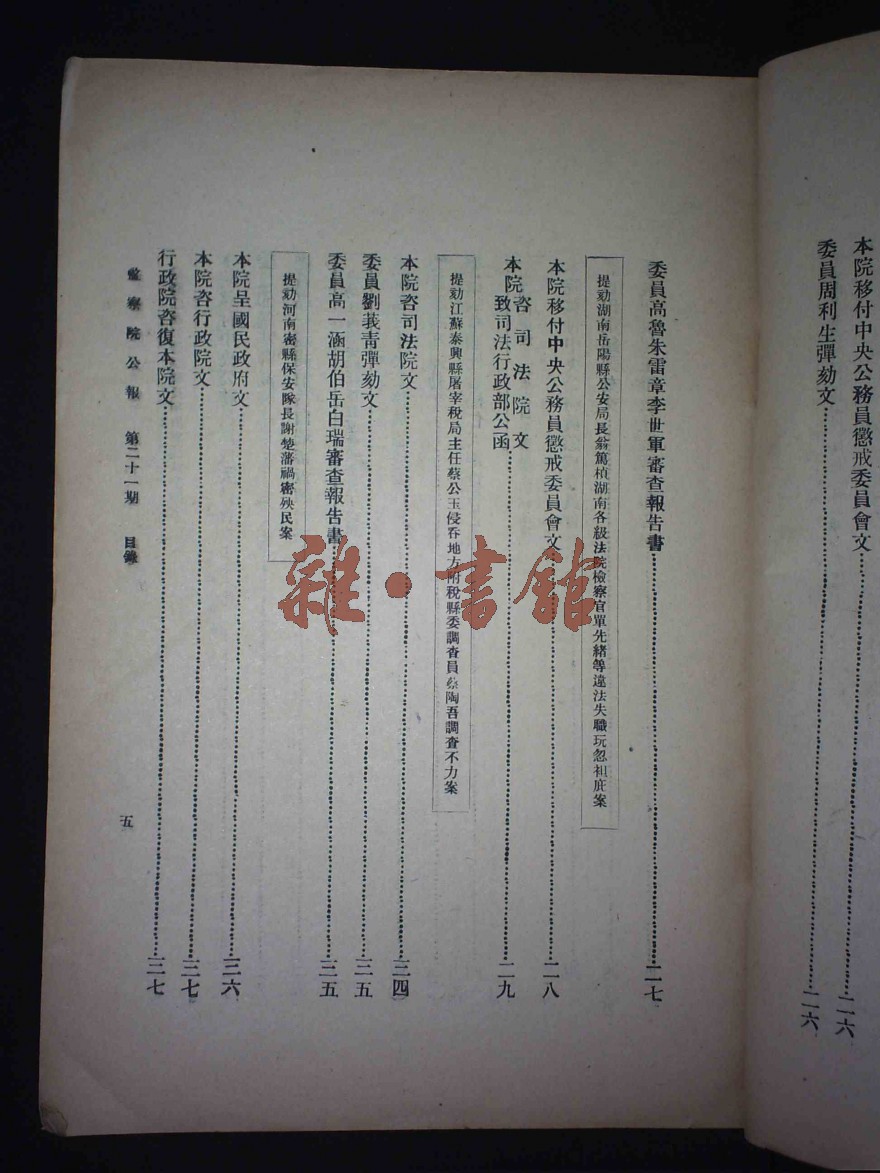 本院移付中央公務員懲戒委員會文…………二六
委員周利生彈劾文…………二六
委員高魯朱雷章李世軍審查報告書…………二七
提劾湖南岳陽縣公安局長翁篤楨湖南各級法院檢察官單先緒等違法失職玩忽袒庇案
本院移付中央公務員懲戒委員會文…………二八
本院咨司法院文
致司法行政部公函…………二九
提劾江蘇泰興縣屠宰稅局主任蔡公玉侵吞地方附稅縣委調查員蔡陶吾調查不力案
本院咨司法院文…………三四
委員劉莪青彈劾文…………三五
委員高一涵胡伯岳白瑞審查報告書…………三五
提劾河南密縣保安隊長謝楚藩禍密殃民案
本院呈國民政府文…………三六
本院咨行政院文…………三七
行政院咨復本院文…………三七
監察院公報 第二十一期 目錄
五
雜·書館